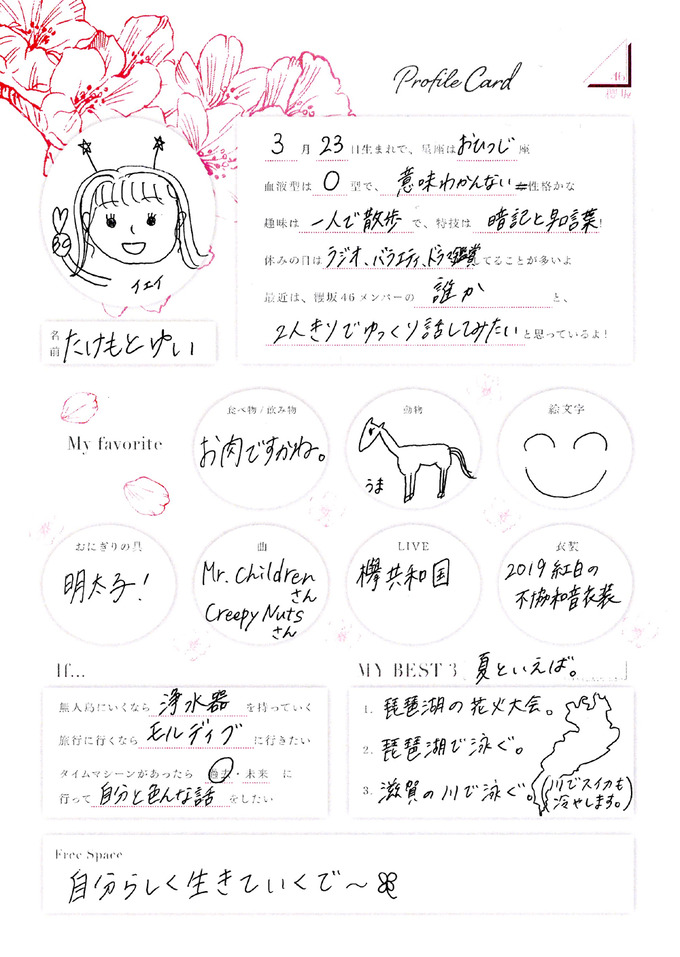 Profile Card
46
櫻坂
イエイ
名前 たけもとゆい
3月23日生まれで、星座はおひつじ座
血液型はO型で、意味わかんない性格かな
趣味は一人で散歩で、特技は暗記と早口言葉!
休みの日はラジオ、バラエティ、ドラマ鑑賞てることが多いよ
最近は、櫻坂46メンバーの誰かと、
2人きりでゆっくり話してみたいと思っているよ!
My favorite
食べ物/飲み物
お肉ですかね。
動物
うま
絵文字
おにぎりの具
明太子!
曲
Mr.Children
さん
Creepy Nuts
さん
LIVE
欅共和国
衣装
2019紅白の
不協和音衣装
If...
無人島にいくなら浄水器を持っていく
旅行に行くならモルディブに行きたい
タイムマシーンがあったら過去・未来に
行って自分と色んな話をしたい
MY BEST 3 夏といえば。
1. 琵琶湖の花火大会。
2. 琵琶湖で泳ぐ。
3. 滋賀の川で泳ぐ。(川でスイカも冷やします。)
Free Space
自分らしく生きていくで〜